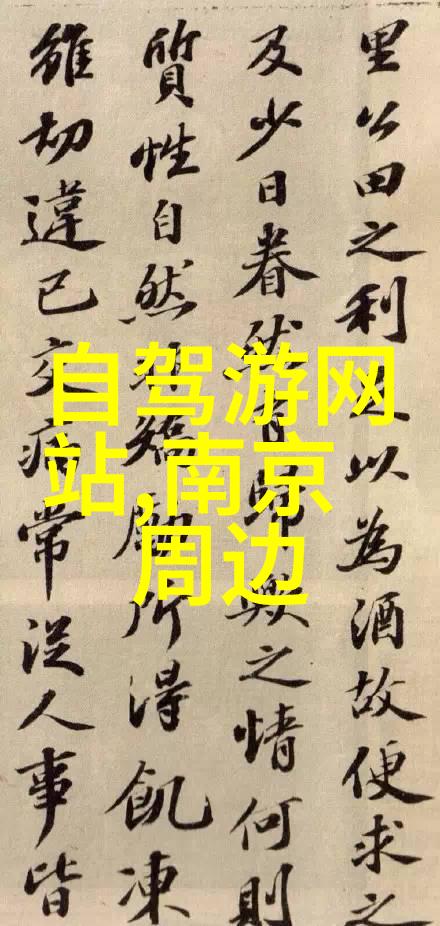 里公田之利足以為酒故便求之
及少日眷然有歸歟之情何則
質性自然非矯勵所得飢凍
雖切違已交病常從人事皆
自驾游网
站,南京
周边